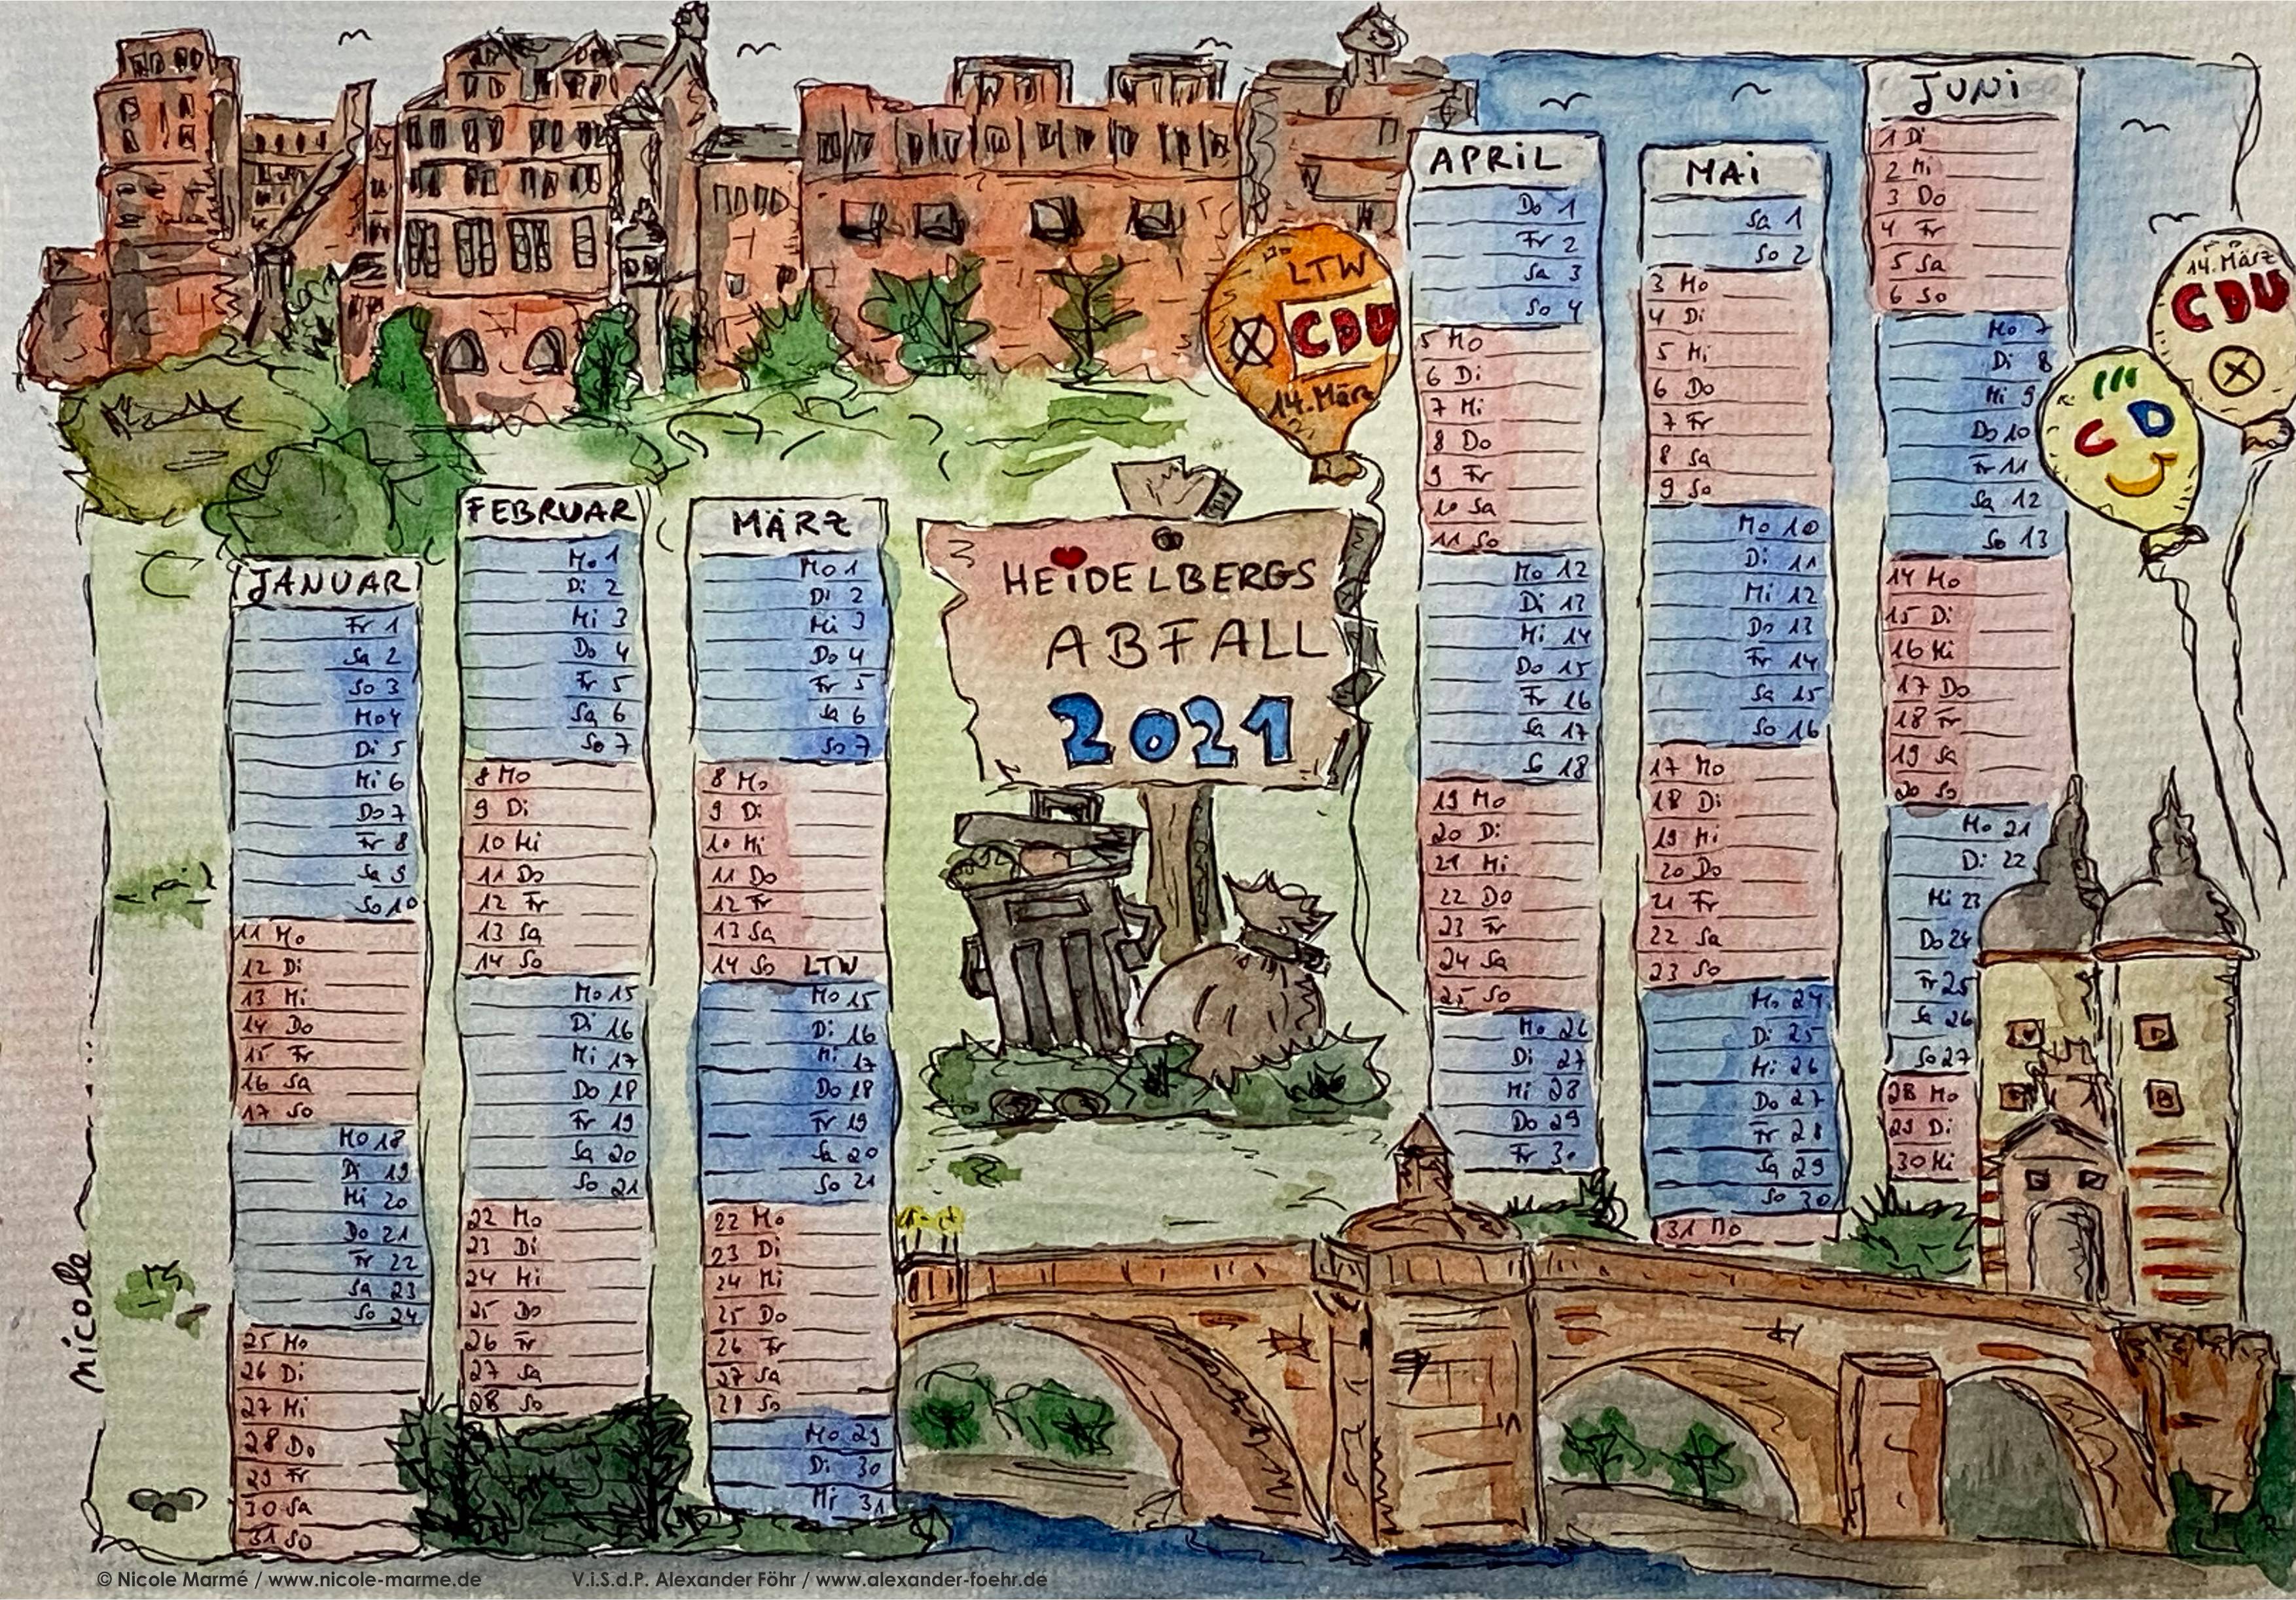 JANUAR
Fr 1
Sa 2
So 3
Mo 4
Di 5
Mi 6
Do 7
Fr 8
Sa 9
So 10
11 Mo
12 Di
13 Mi
14 Do
15 Fr
16 Sa
17 So
Mo 18
Di 19
Mi 20
Do 21
Fr 22
Sa 23
So 24
25 Mo
26 Di
27 Mi
28 Do
29 Fr
30 Sa
31 So
FEBRUAR
Mo 1
Di 2
Mi 3
Do 4
Fr 5
Sa 6
So 7
8 Mo
9 Di
10 Mi
11 Do
12 Fr
13 Sa
14 So
Mo 15
Di 16
Mi 17
Do 18
Fr 19
Sa 20
So 21
22 Mo
23 Di
24 Mi
25 Do
26 Fr
27 Sa
28 So
MÄRZ
Mo 1
Di 2
Mi 3
Do 4
Fr 5
Sa 6
So 7
8 Mo
9 Di
10 Mi
11 Do
12 Fr
13 Sa
14 So LTW
Mo 15
Di 16
Mi 17
Do 18
Fr 19
Sa 20
So 21
22 Mo
23 Di
24 Mi
25 Do
26 Fr
27 Sa
28 So
Mo 29
Di 30
Mi 31
HEIDELBERGS
ABFALL
2021
LTW
CDU
14. März
APRIL
Do 1
Fr 2
Sa 3
So 4
5 Mo
6 Di
7 Mi
8 Do
9 Fr
10 Sa
11 So
Mo 12
Di 13
Mi 14
Do 15
Fr 16
Sa 17
So 18
19 Mo
20 Di
21 Mi
22 Do
23 Fr
24 Sa
25 So
Mo 26
Di 27
Mi 28
Do 29
Fr 30
MAI
Sa 1
So 2
3 Mo
4 Di
5 Mi
6 Do
7 Fr
8 Sa
9 So
Mo 10
Di 11
Mi 12
Do 13
Fr 14
Sa 15
So 16
17 Mo
18 Di
19 Mi
20 Do
21 Fr
22 Sa
23 So
Mo 24
Di 25
Mi 26
Do 27
Fr 28
Sa 29
So 30
31 Mo
JUNI
1 Di
2 Mi
3 Do
4 Fr
5 Sa
6 So
Mo 7
Di 8
Mi 9
Do 10
Fr 11
Sa 12
So 13
14 Mo
15 Di
16 Mi
17 Do
18 Fr
19 Sa
20 So
Mo 21
Di 22
Mi 23
Do 24
Fr 25
Sa 26
So 27
28 Mo
29 Di
30 Mi
14. März
CDU
CDU
nicole
© Nicole Marmé / www.nicole-marme.de
V.i.S.d.P. Alexander Föhr / www.alexander-foehr.de